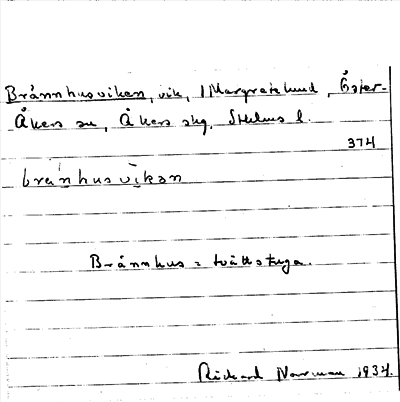 Brännhusviken, vik, i Margretelund, Öster-
Åkers sn, Åkers skg, Sthlms l.
374
brän̄husvīkan
Brännhus = tvättstuga.
Rickard Norman 1934.